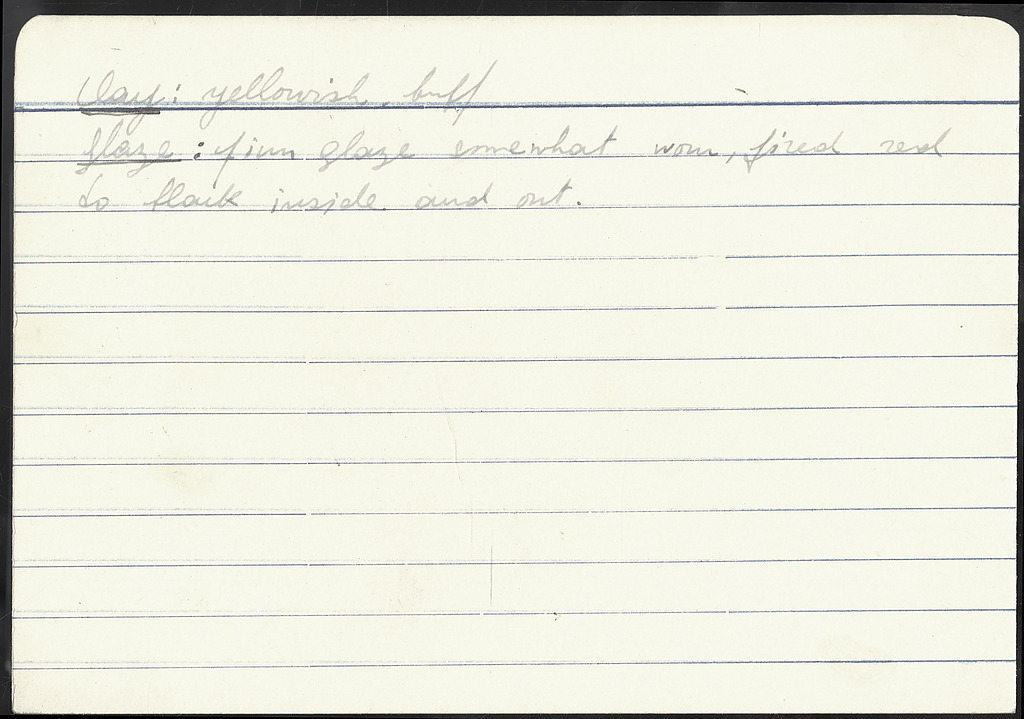 Clay: yellowish buff
Glaze: firm glaze somewhat worn, fired red
to black inside and out.